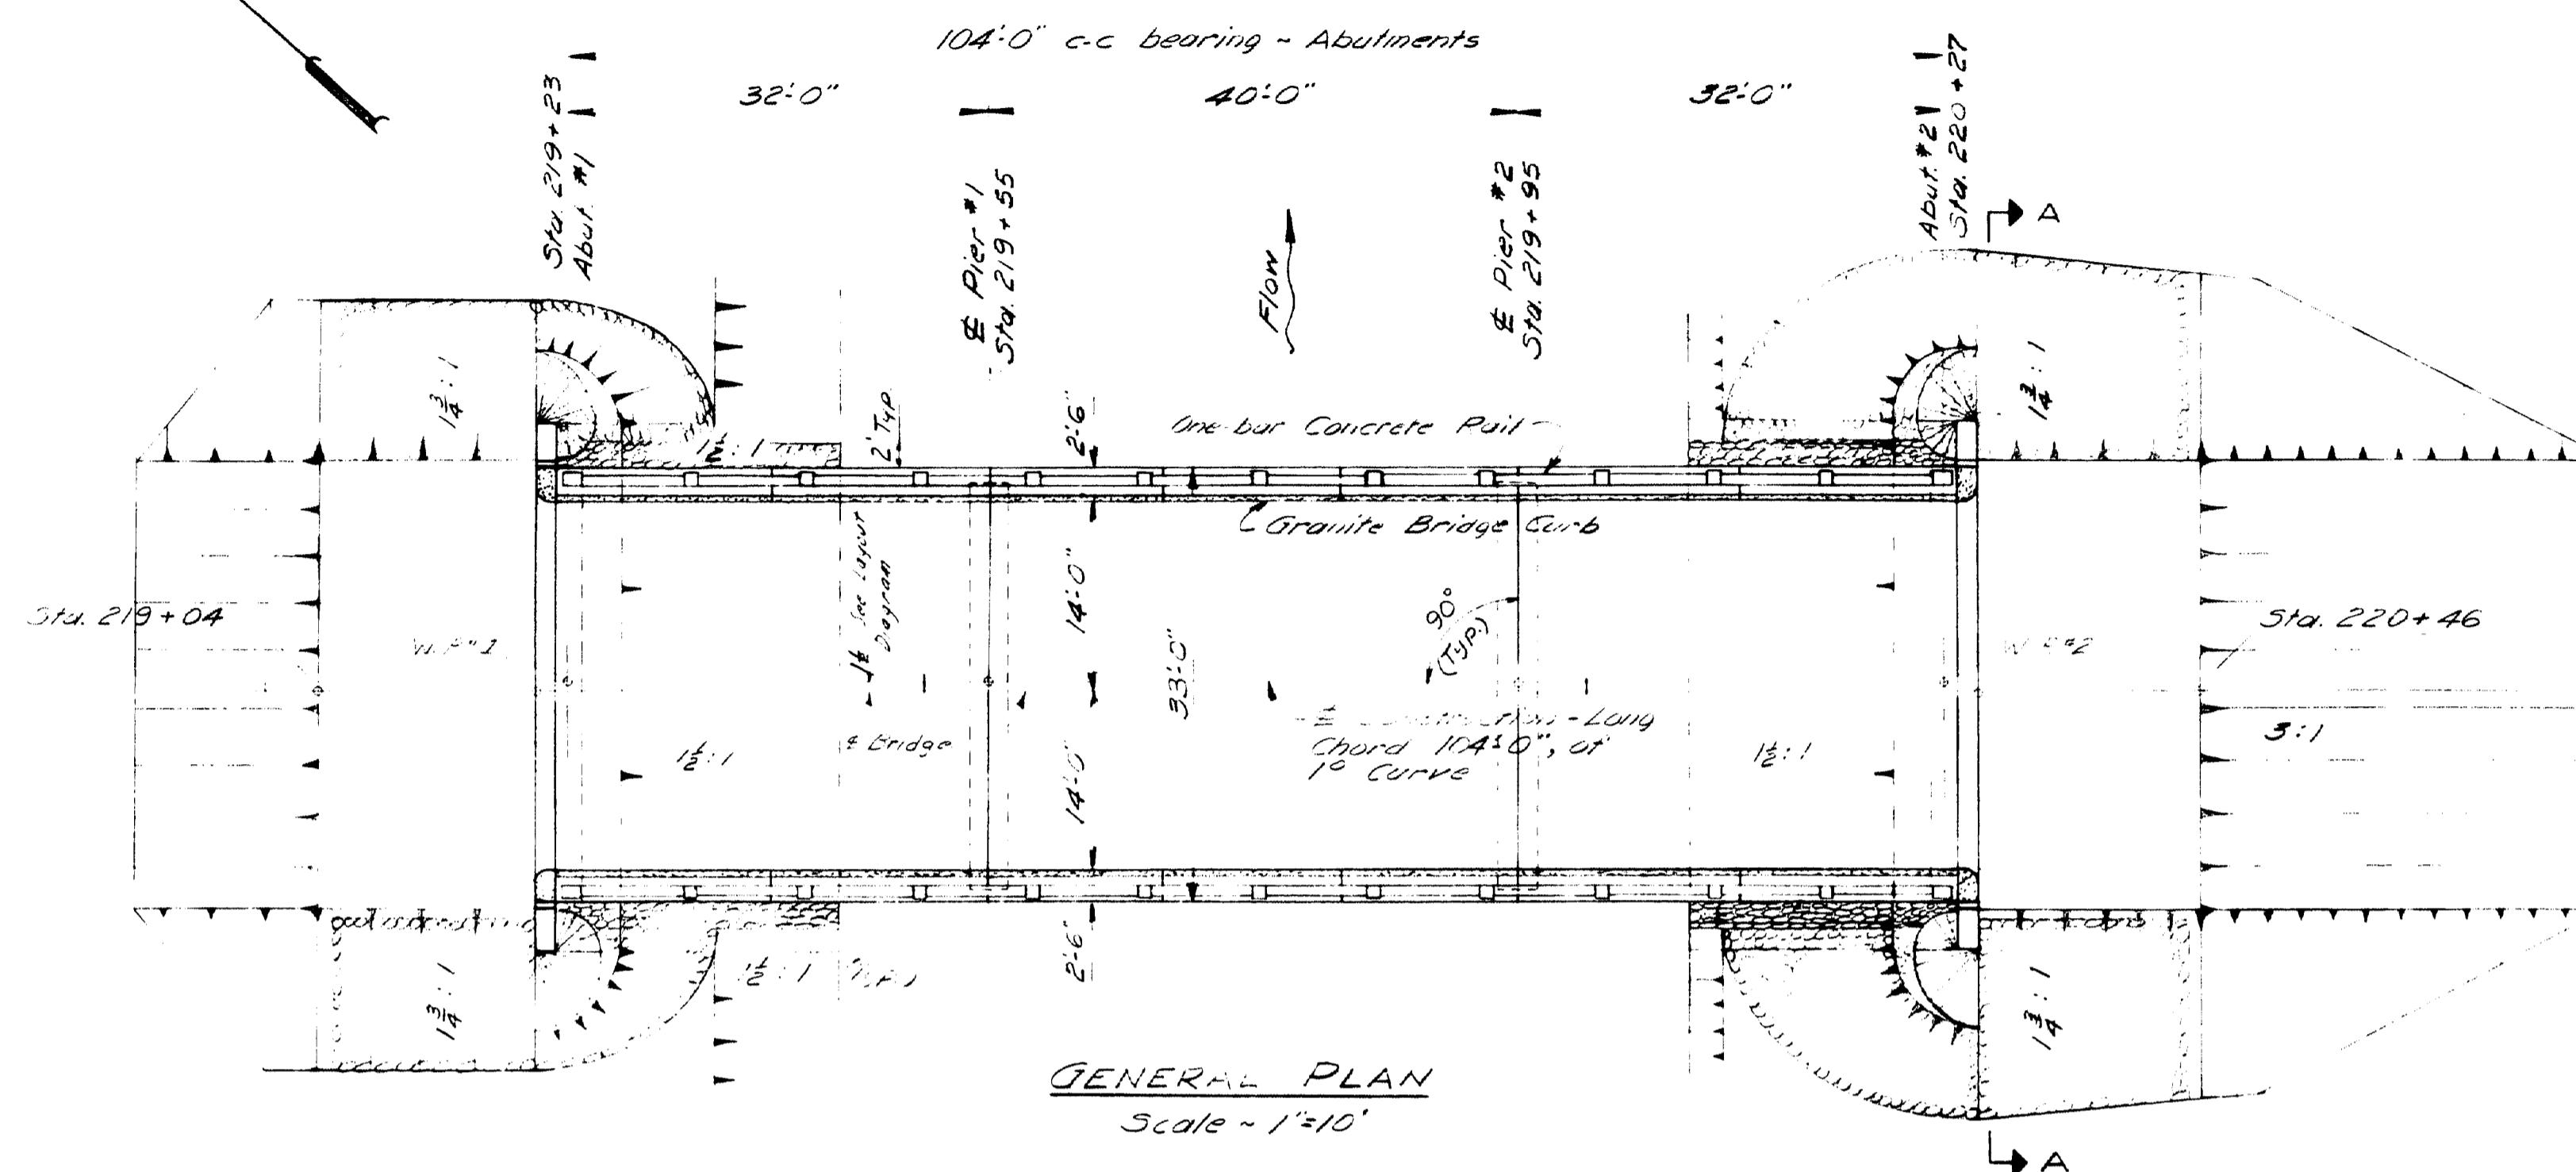 104'-0" c-c bearing ~ Abutments
32'-0"
40'-0"
32'-0"
Sta. 219+23
Abut. #1
℄ Pier #1
Sta. 219+55
Flow
℄ Pier #2
Sta. 219+95
Abut. #2
Sta. 220+27
A
1 3/4 : 1
1 1/2 : 1
2' Typ.
2'-6"
One-bar Concrete Rail
1 3/4 : 1
Granite Bridge Curb
See Layout
Diagram
14'-0"
33'-0"
90°
(Typ.)
Sta. 219+04
W.P. #1
W.P. #2
Sta. 220+46
℄ Construction - Long
Chord 104'-0", of
1° Curve
1 1/2 : 1
℄ Bridge
14'-0"
1 1/2 : 1
3:1
1 3/4 : 1
1 1/2 : 1 (Typ.)
2'-6"
1 3/4 : 1
GENERAL PLAN
Scale ~ 1"=10'
A